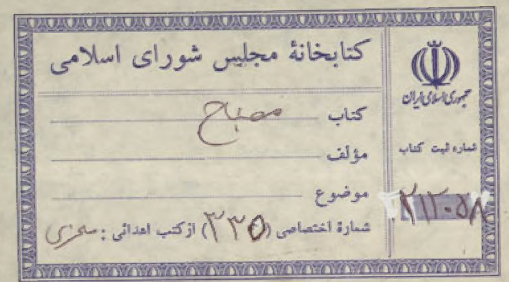 کتابخانهٔ مجلس شورای اسلامی
جمهوری اسلامی ایران
کتاب مصباح
مؤلف
موضوع
شمارهٔ اختصاصی (۳۳۵) از کتب اهدائی :
شماره ثبت کتاب
۲۱۲۰۵۸